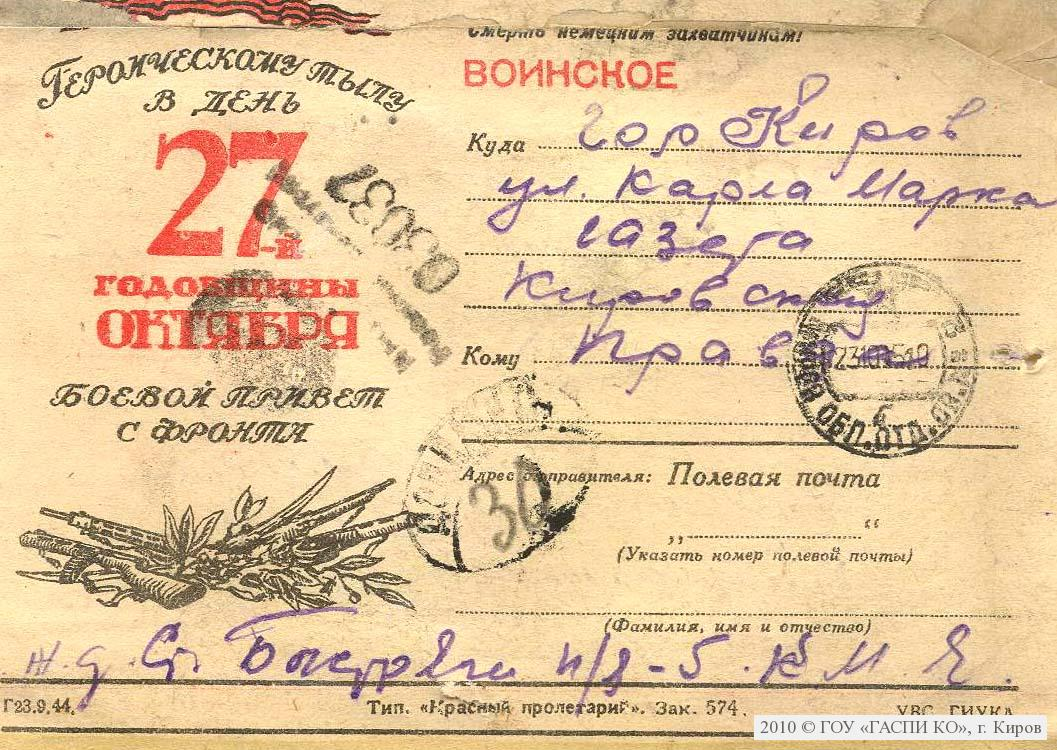 Смерть немецким захватчикам!
ВОИНСКОЕ
ГЕРОИЧЕСКОМУ ТЫЛУ
В ДЕНЬ
27-й
ГОДОВЩИНЫ
ОКТЯБРЯ
БОЕВОЙ ПРИВЕТ
С ФРОНТА
Куда гор Киров
ул. Карла Маркса
газета
Кировская
Кому Правда
03037
30
ОБЛ.ОТД.СВ.
Адрес отправителя: Полевая почта
„ “
(Указать номер полевой почты)
(Фамилия, имя и отчество)
ж.д. Ст. Быстряги п/я-5. К. М. Я.
Г23.9.44.
Тип. «Красный пролетарий». Зак. 574.
УВС ГИУКА
2010 © ГОУ «ГАСПИ КО», г. Киров